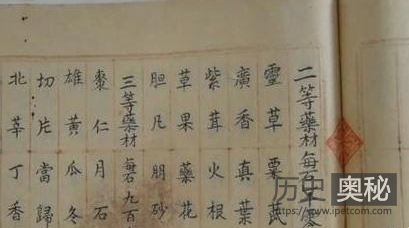 二等藥材每百斤
靈草
廣香真葉
紫茸火根
草果藥花
胆凡朋砂
三等藥材每石九百
棗仁月石
雄黃瓜冬
切片當歸
北莘丁香
历史奥秘
www.ipetcom.com